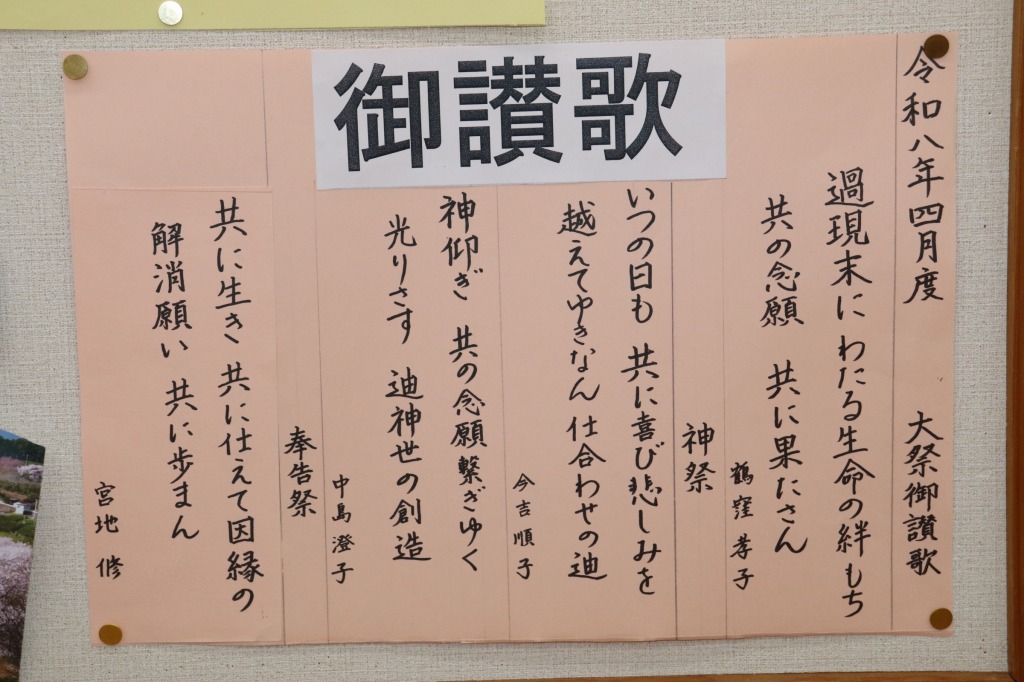 御讃歌
令和八年四月度　大祭御讃歌
過現末にわたる生命の絆もち
共の念願　共に果たさん
鶴窪孝子
神祭
いつの日も　共に喜び悲しみを
越えてゆきなん　仕合わせの迪
今吉順子
神仰ぎ　共の念願繋ぎゆく
光りさす　迪神世の創造
中島澄子
奉告祭
共に生き　共に仕えて因縁の
解消願い　共に歩まん
宮地　修